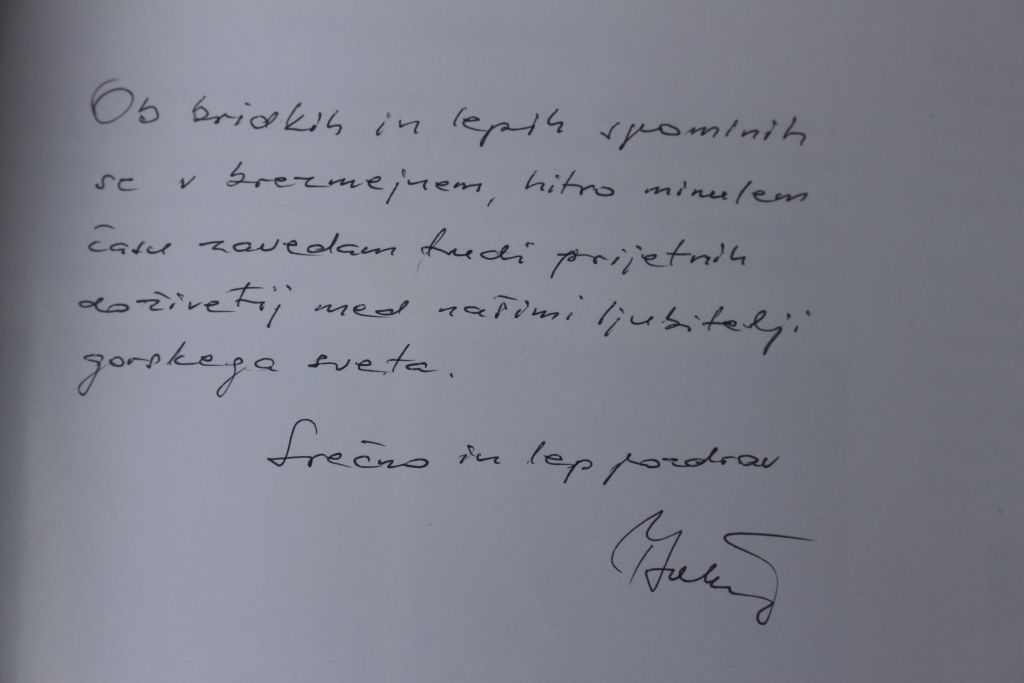 Ob bridkih in lepih spominih
se v brezmejnem, hitro minulem
času zavedam tudi prijetnih
doživetij med našimi ljubitelji
gorskega sveta.
Srečno in lep pozdrav